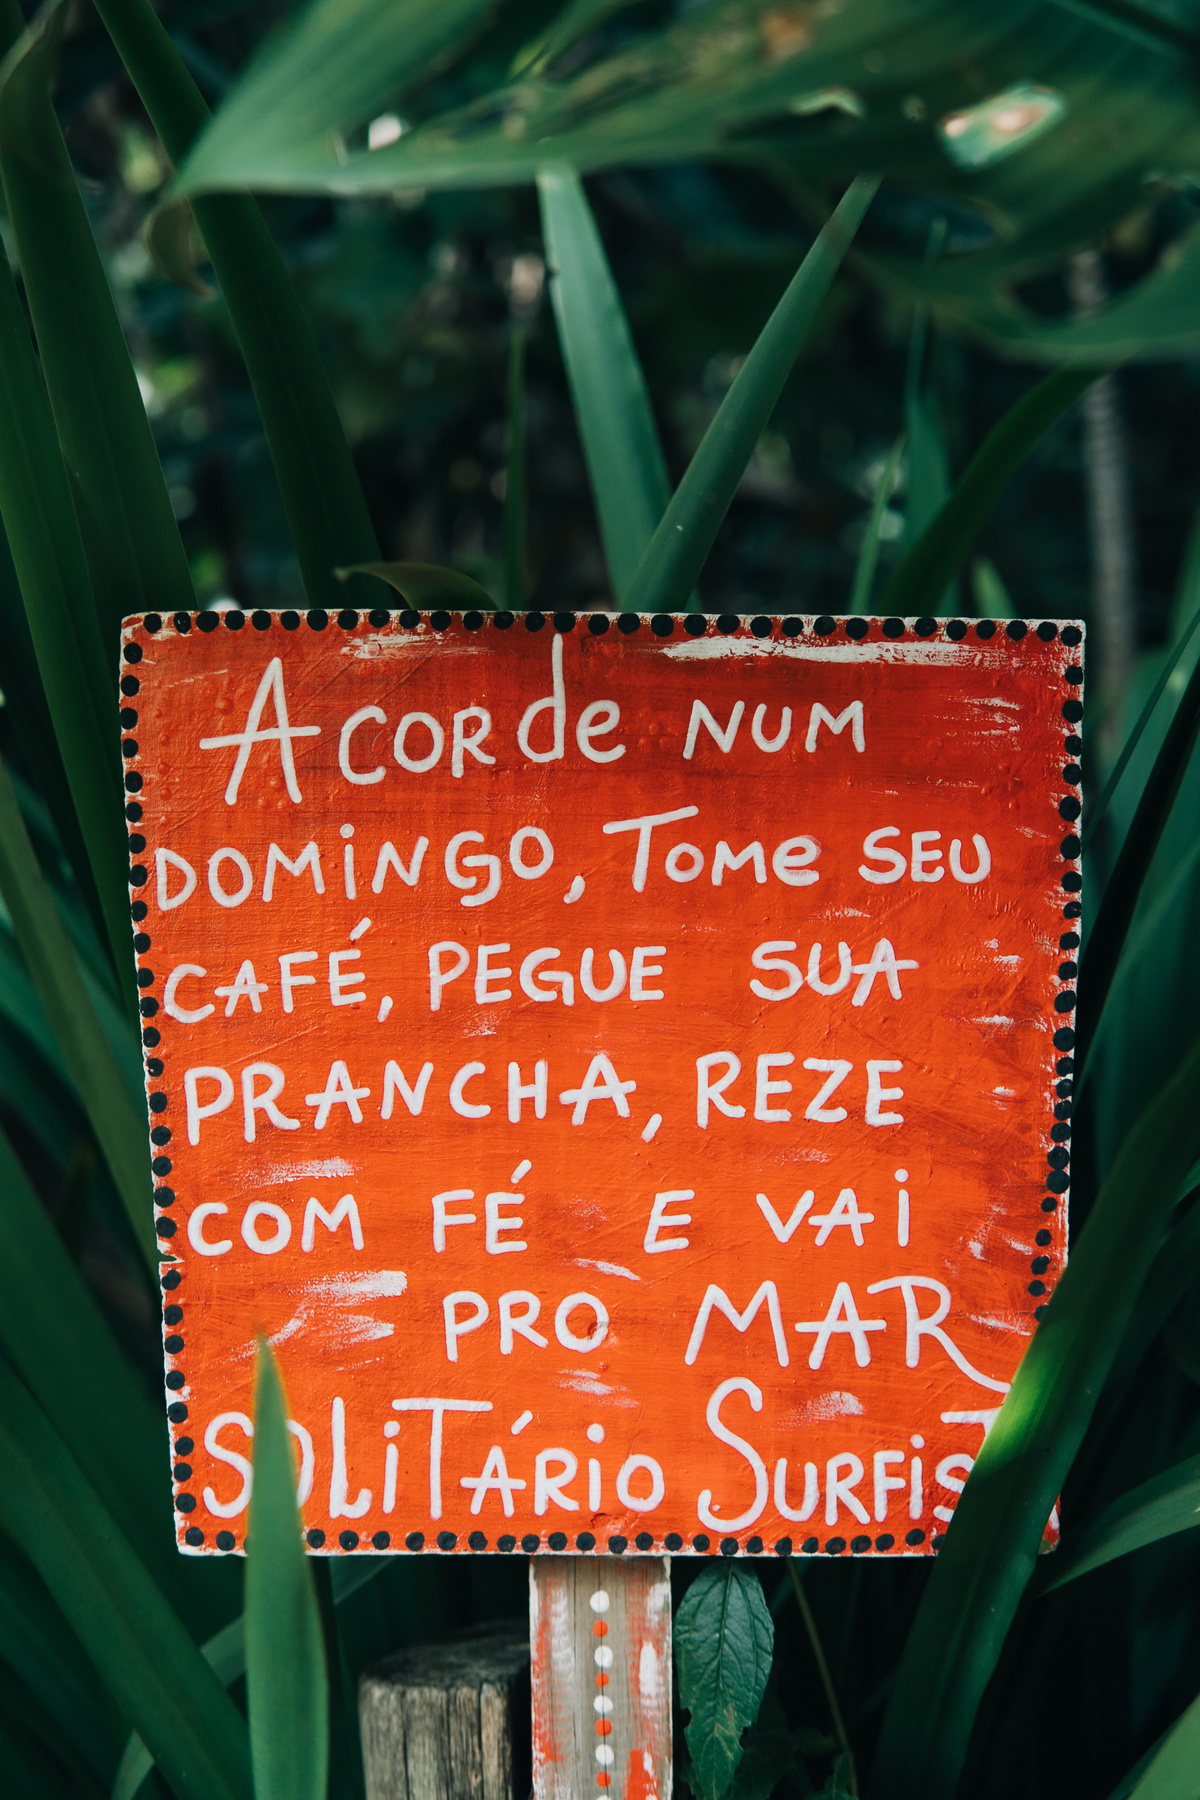 Acorde NUM
DOMINGO, Tome SEU
CAFÉ, PEGUE SUA
PRANCHA, REZE
COM FÉ E VAI
PRO MAR
SOLITÁRIO SURFIST